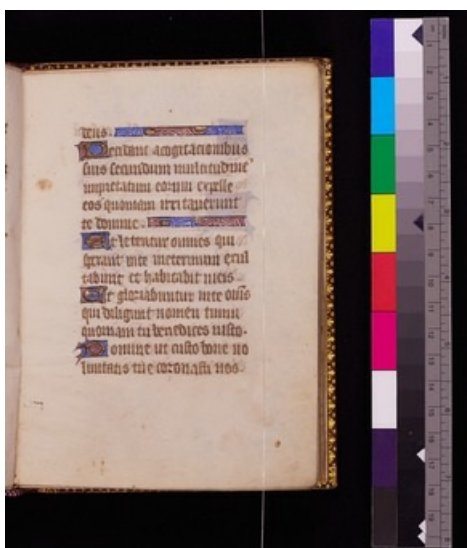 deus.
Decidant acogitacionibus
suis secundum multitudine
impietatum eorum expelle
eos quoniam irritauerunt
te domine.
Et letentur omnes qui
sperant inte ineternum exul
tabunt et habitabis ineis
Et gloriabuntur inte omnes
qui diligunt nomen tuum
quoniam tu benedices iusto.
Domine ut scuto bone uo
luntatis tue coronasti nos